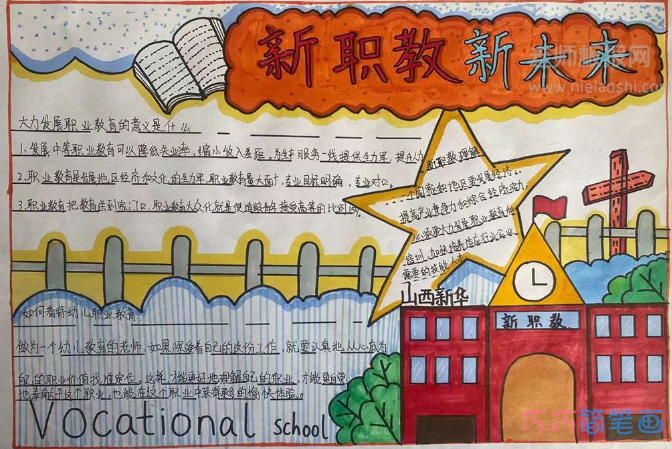 新职教新未来
www.nielaoshi.com
大力发展职业教育的意义是什么
1.发展中等职业教育可以降低失业率，缩小收入差距，为生产服务一线提供生力军，提升人力
2.职业教育是发展地区经济和文化的生力军，职业教育覆大面广，专业目标明确，专业对口。
3.职业教育把教育送到家门口，职业教育大众化就是使适龄青年接受高等的比例
新职教理解
一个国家和地区要发展经济，
提高产业竞争力和综合经济实力，
必须要大力发展职业教育和
培训，加快培养适应行业企业
需要的技能人才
山西新华
新职教
如何看待幼儿职业教育
做为一个幼儿教育的老师，如果深爱着自己的这份工作，就要认真地，从心底为
自己的职业价值找准定位。这样，才能更好地理解自己的职业，才能更自觉
地奉献于这个职业，也能在这个职业中获得更多的愉快体验。
Vocational School
巧巧简笔画